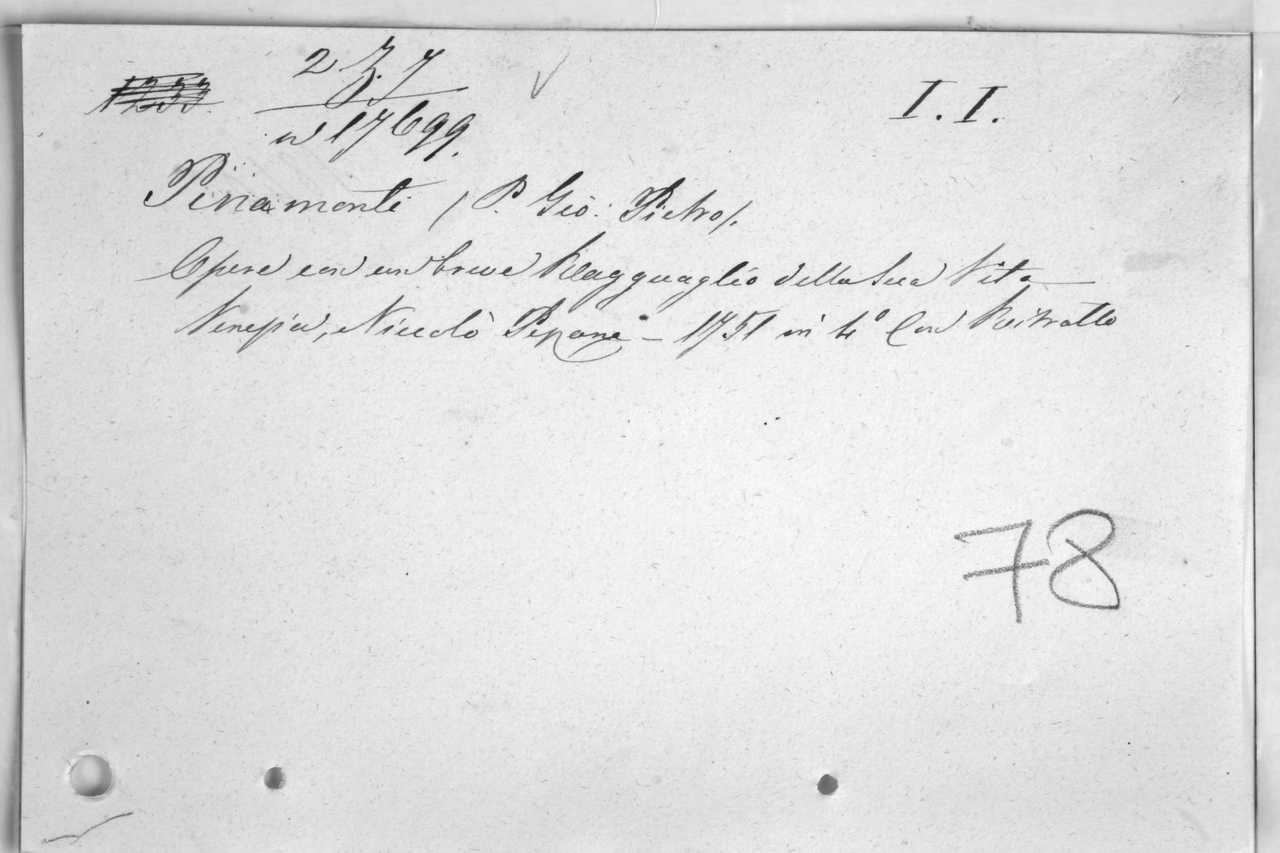 2 Z. 7
I. I.
n 17699.
Pinamonti /P. Gio: Pietro/.
Opere con un breve Ragguaglio della sua Vita
Venezia, Niccolò Pezzana – 1751 in 4º Con Ritratto
78